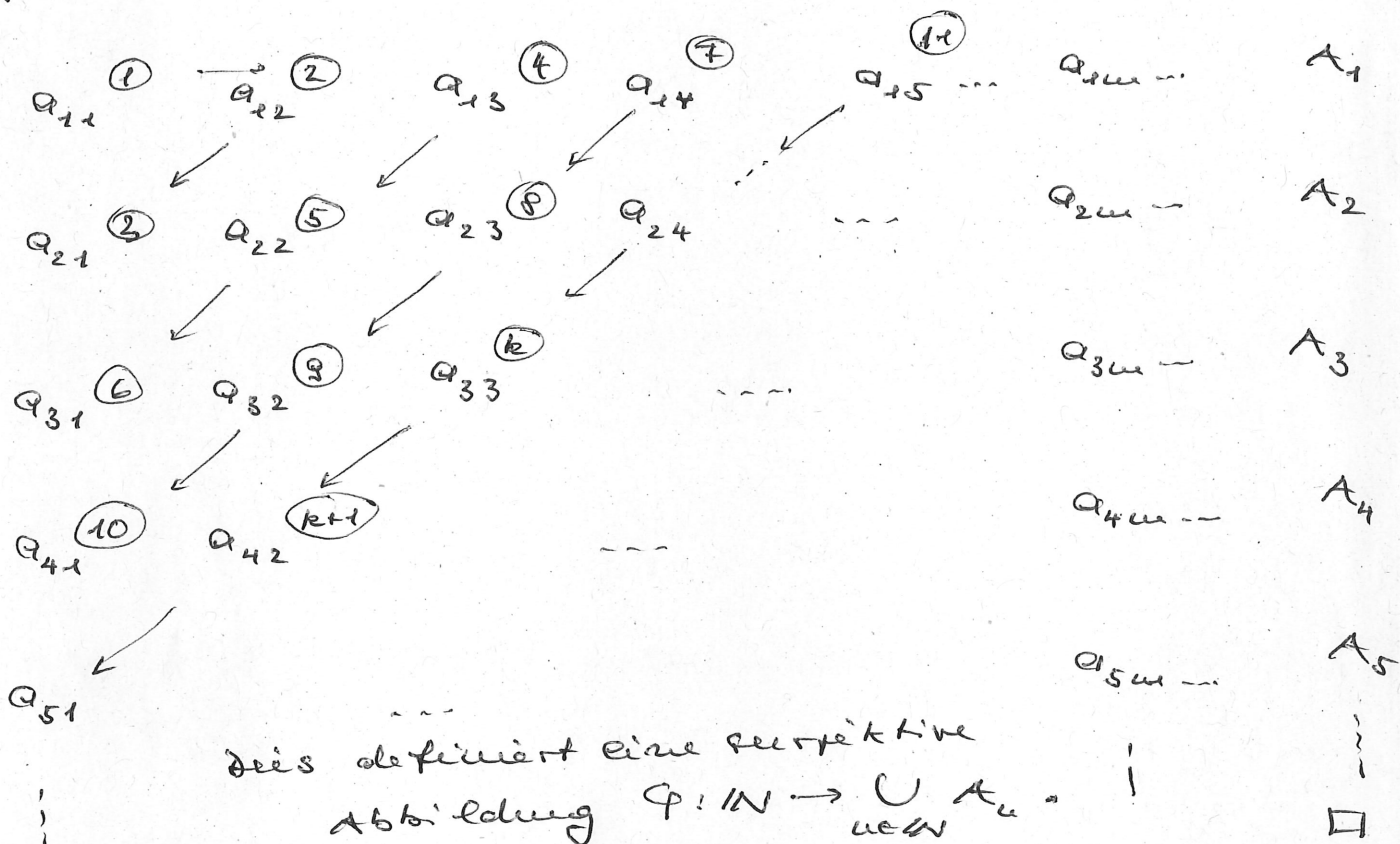 a₁₁ ① → a₁₂ ② a₁₃ ④ a₁₄ ⑦ a₁₅ ⑪ ... a₁ₘ ... A₁
a₂₁ ③ a₂₂ ⑤ a₂₃ ⑧ a₂₄ ... a₂ₘ ... A₂
a₃₁ ⑥ a₃₂ ⑨ a₃₃ ⓚ ... a₃ₘ ... A₃
a₄₁ ⑩ a₄₂ (k+1) ... a₄ₘ ... A₄
a₅₁ ... a₅ₘ ... A₅
Dies definiert eine surjektive
Abbildung φ: ℕ → ∪_{n∈ℕ} Aₙ. □